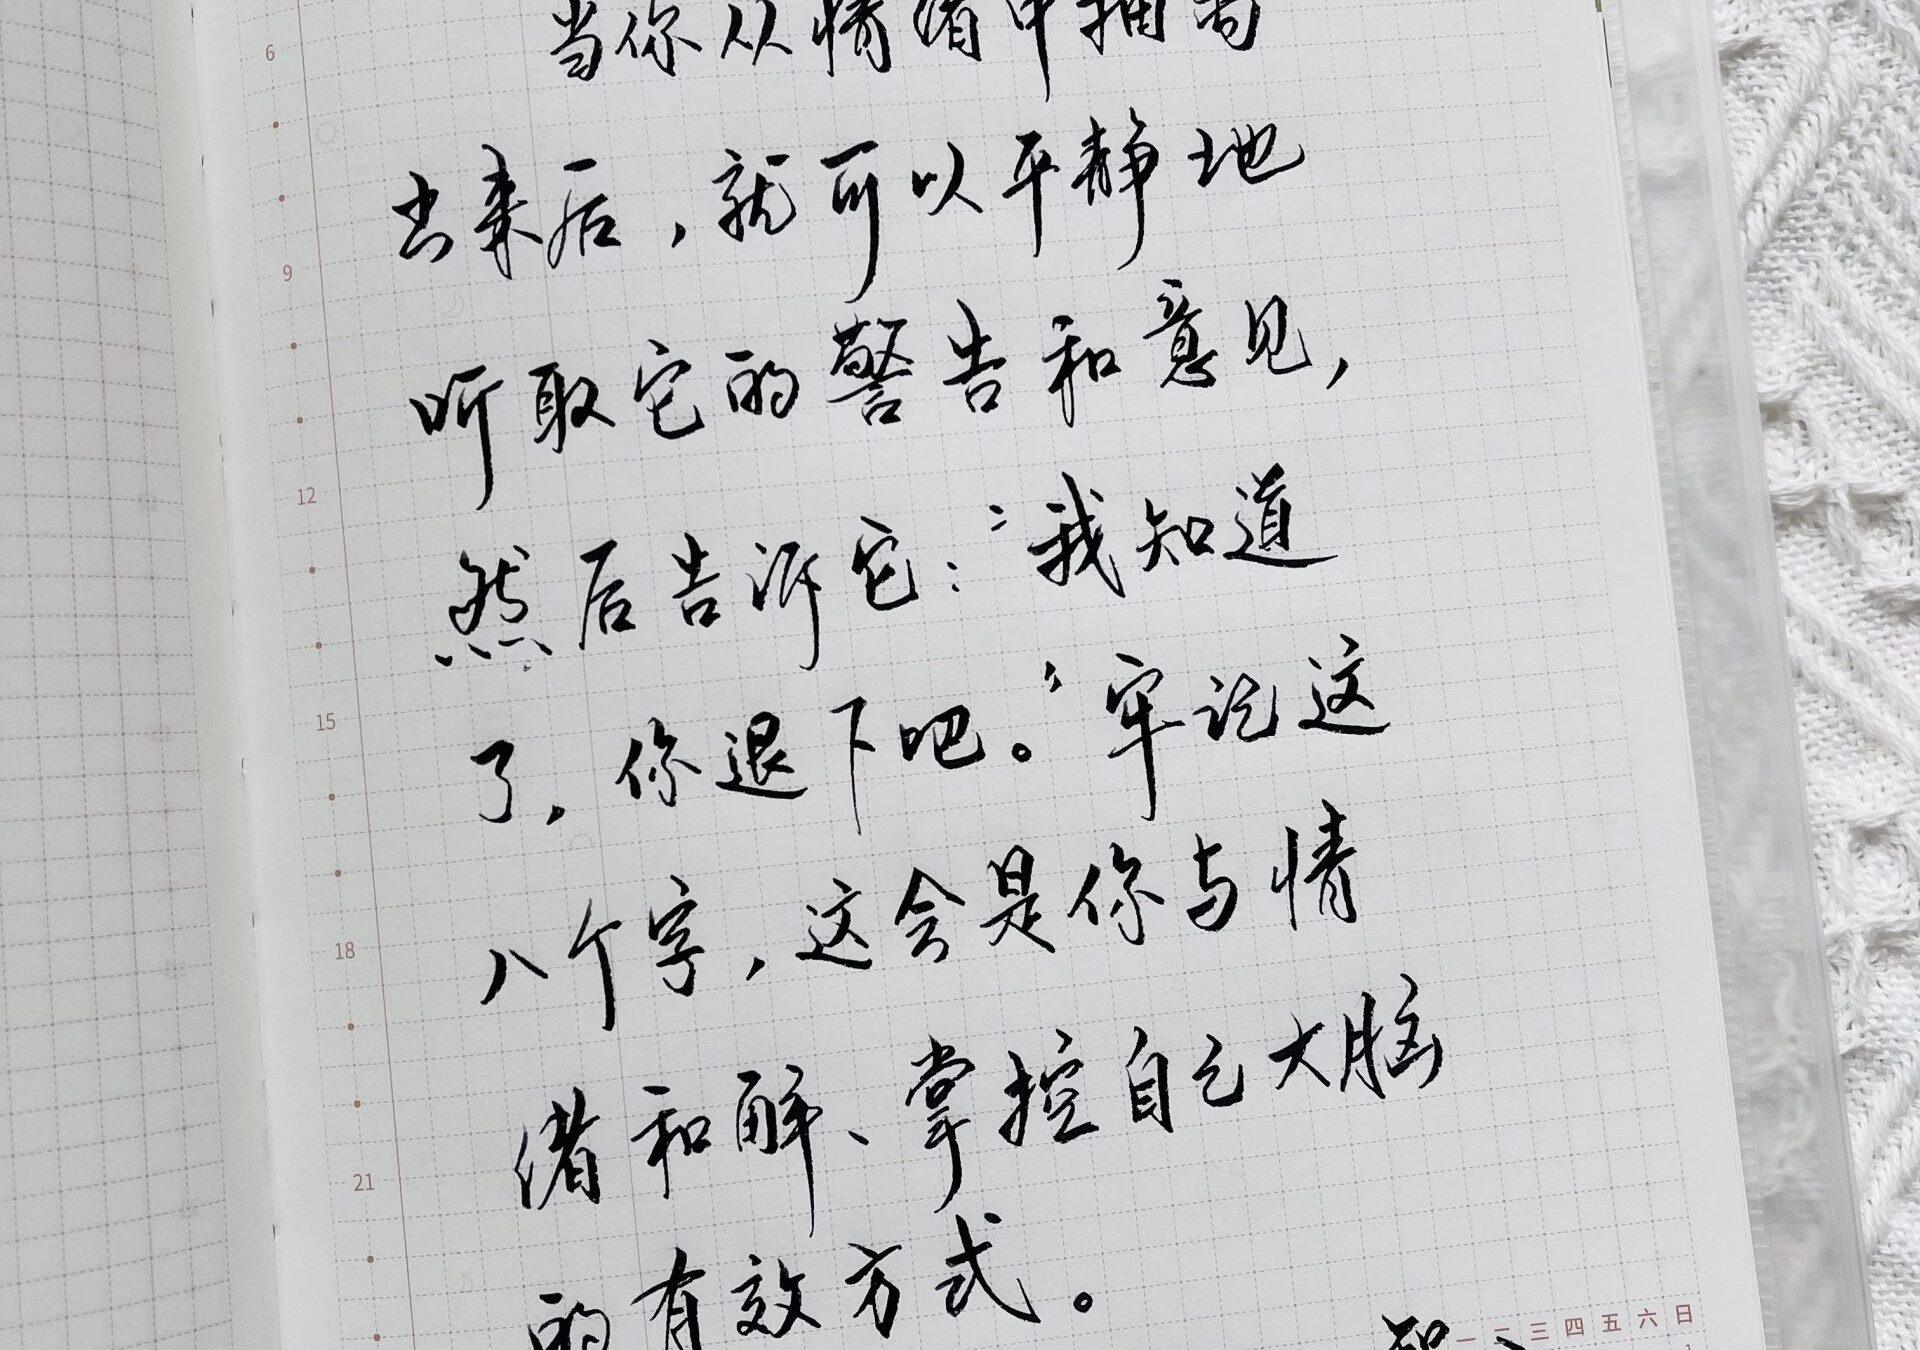 当你从情绪中抽离
出来后，就可以平静地
听取它的警告和意见，
然后告诉它：“我知道
了，你退下吧。”牢记这
八个字，这会是你与情
绪和解、掌控自己大脑
的有效方式。
6
9
12
15
18
21
一 二 三 四 五 六 日